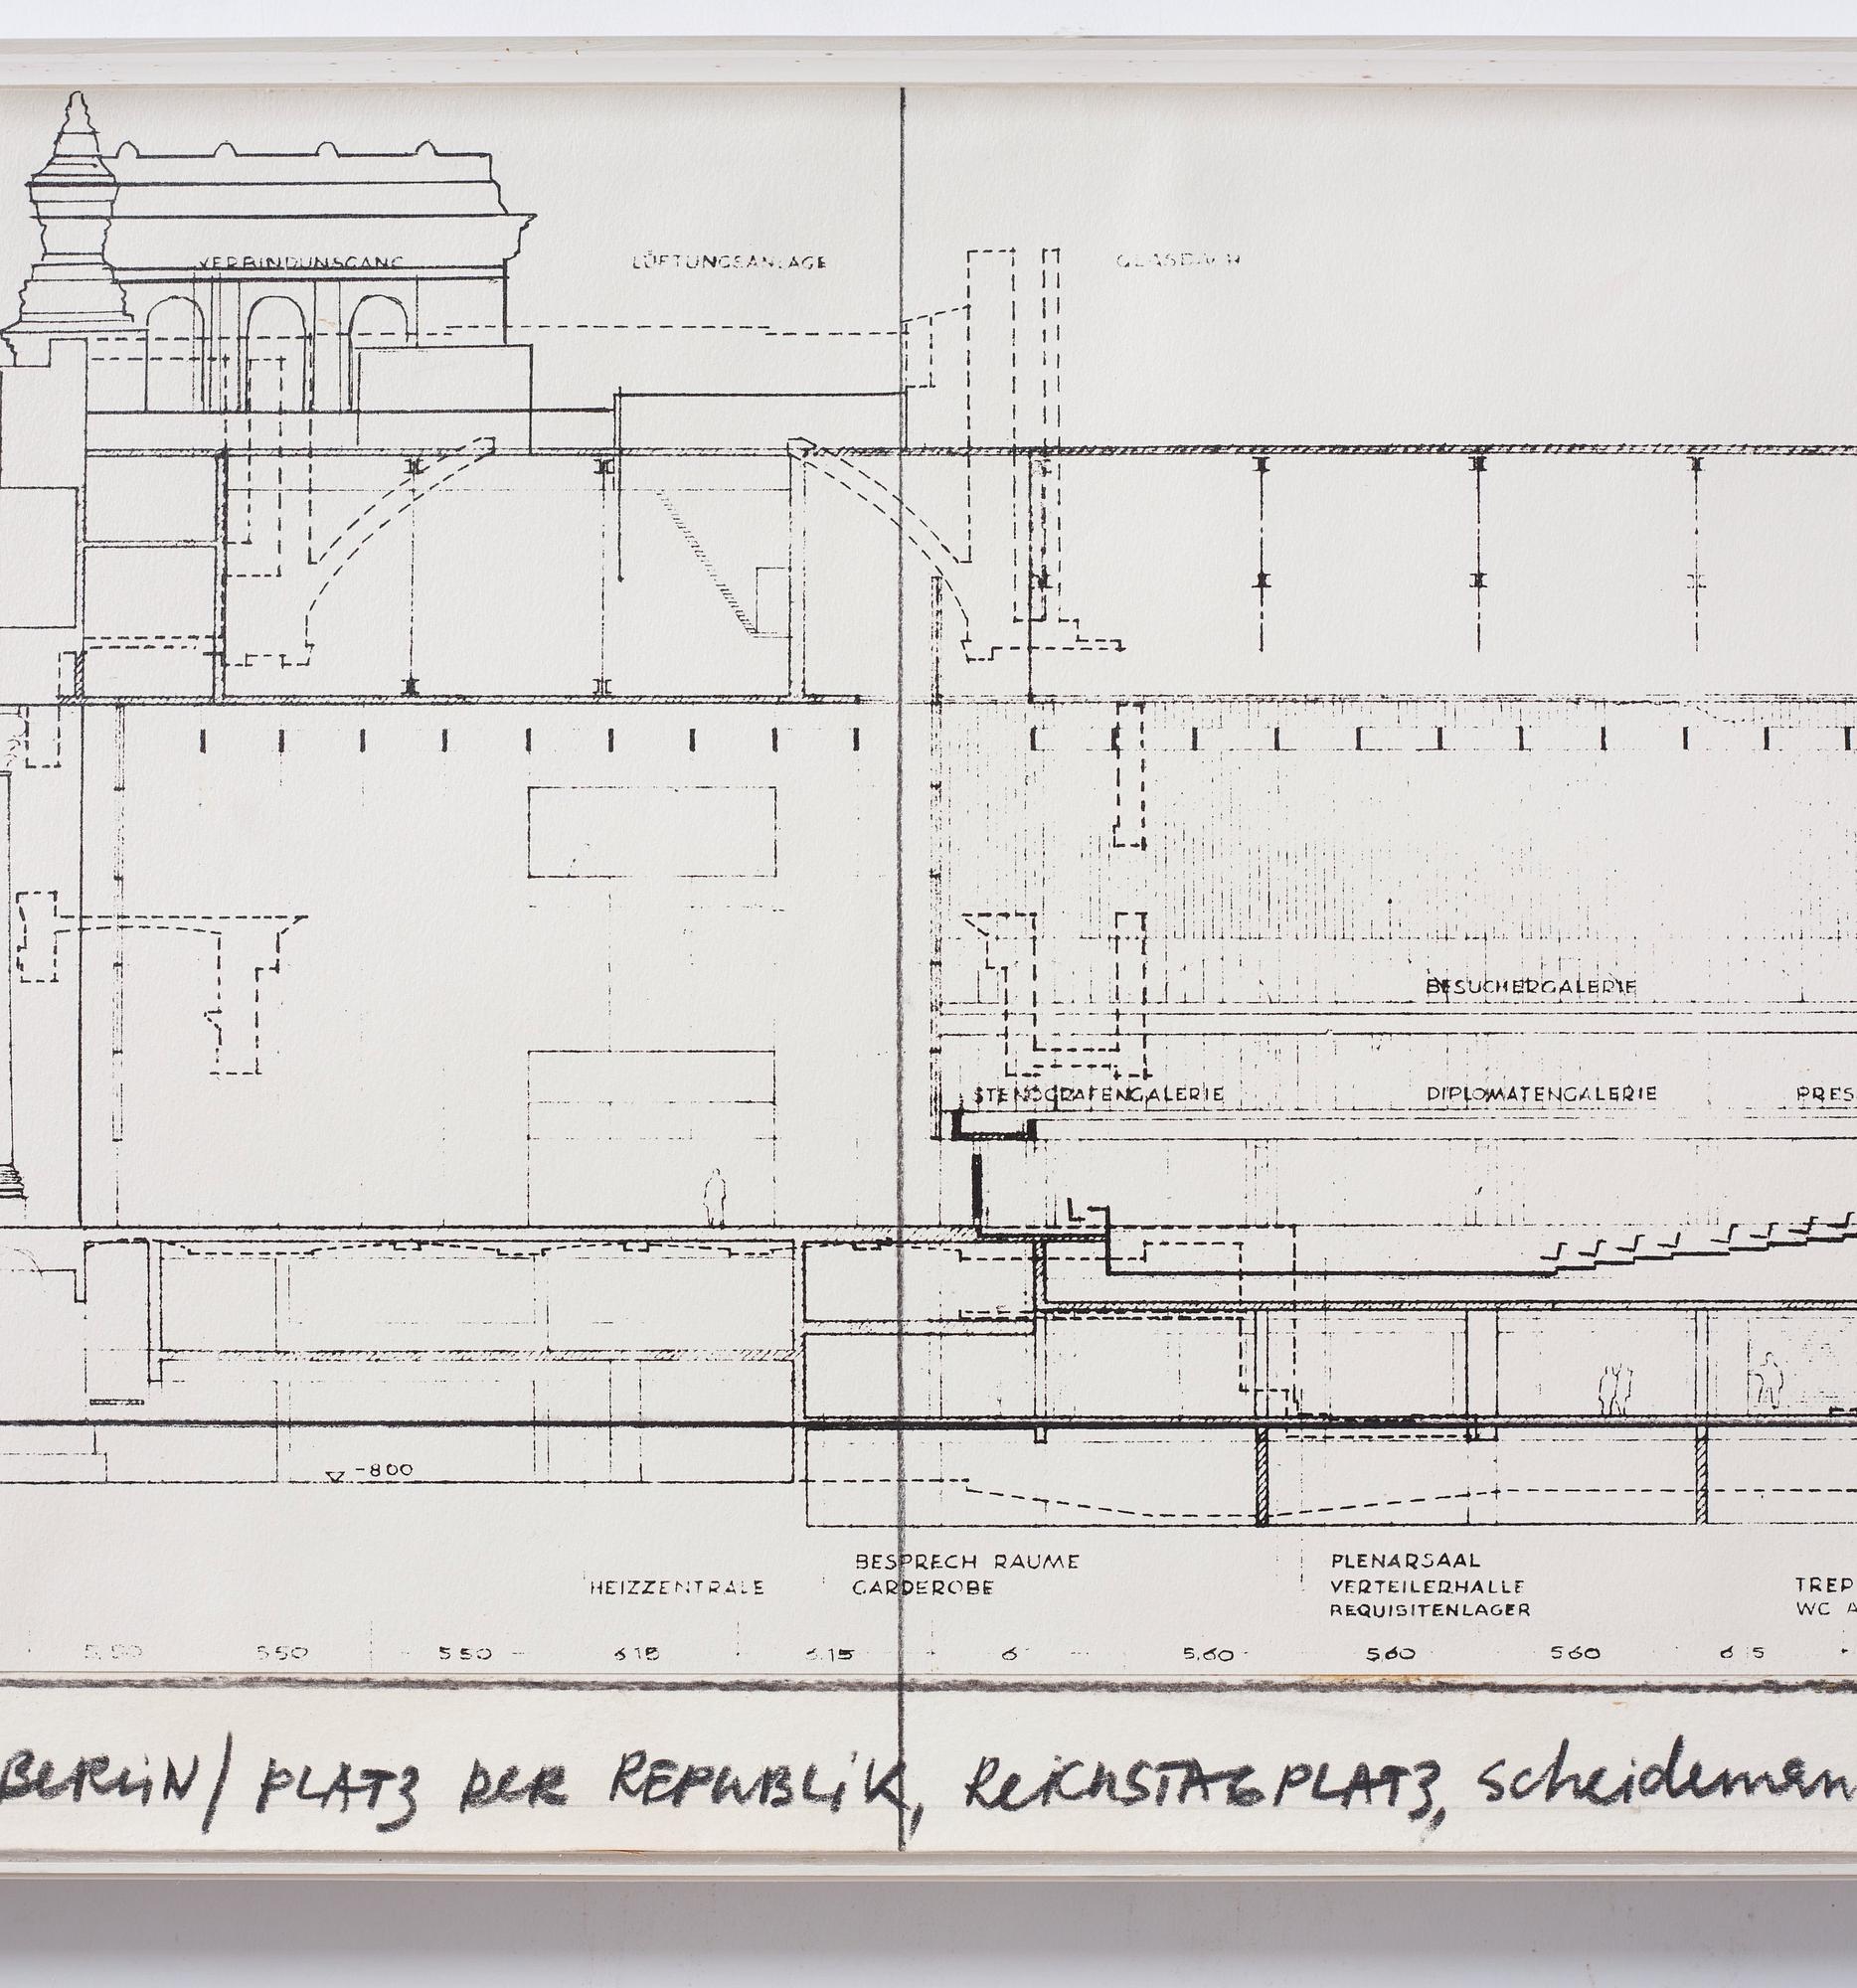 VERBINDUNSGANG
LÜFTUNGSANLAGE
GLASDACH
BESUCHERGALERIE
STENOGRAFENGALERIE
DIPLOMATENGALERIE
PRES
-800
BESPRECH RAUME
GARDEROBE
HEIZZENTRALE
PLENARSAAL
VERTEILERHALLE
REQUISITENLAGER
TREP
WC A
5,50 550 550 615 6.15 6 5,60 5,60 560 6 5
BERLiN / PLATZ DER REPUBLiK, REiCHSTAGPLATZ, scheideman